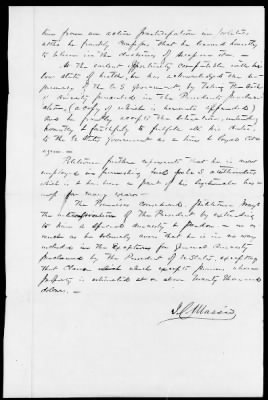 him from an active participation in politics
altho he frankly confesses that he leaned honestly
to believe in the doctrine of Secession. —
At the earliest opportunity compatible with his
low state of health, he has acknowledged the su-
premacy of the U.S. government, by taking the Oath
of Amnesty provided in the Presidents proclam-
ation, (a copy of which is hereunto appended)
and he frankly accepts the situation, intending
honestly & faithfully to fulfill all his duties,
to the U. States Government as a true & loyal citi-
zen —
Petitioner further represents that he is now
employed in farming pursuits
which has been a part of his legitimate bus-
iness for many years —
The Premises considered, petitioner prays
the interposition of the President by extending
to him a special amnesty & pardon — in as
much as he solemnly avers that he is in no way
included in the Exceptions for General Amnesty
proclaimed by the President of U. States, excepting
that clause which excepts persons whose
property is estimated at or above twenty thousand
dollars. —
J. C. Massie